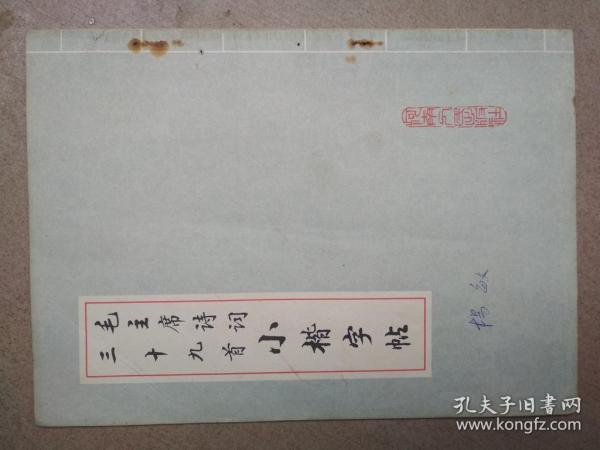 毛主席诗词
三十九首
小楷字帖
杨敏
孔夫子旧书网
www.kongfz.com